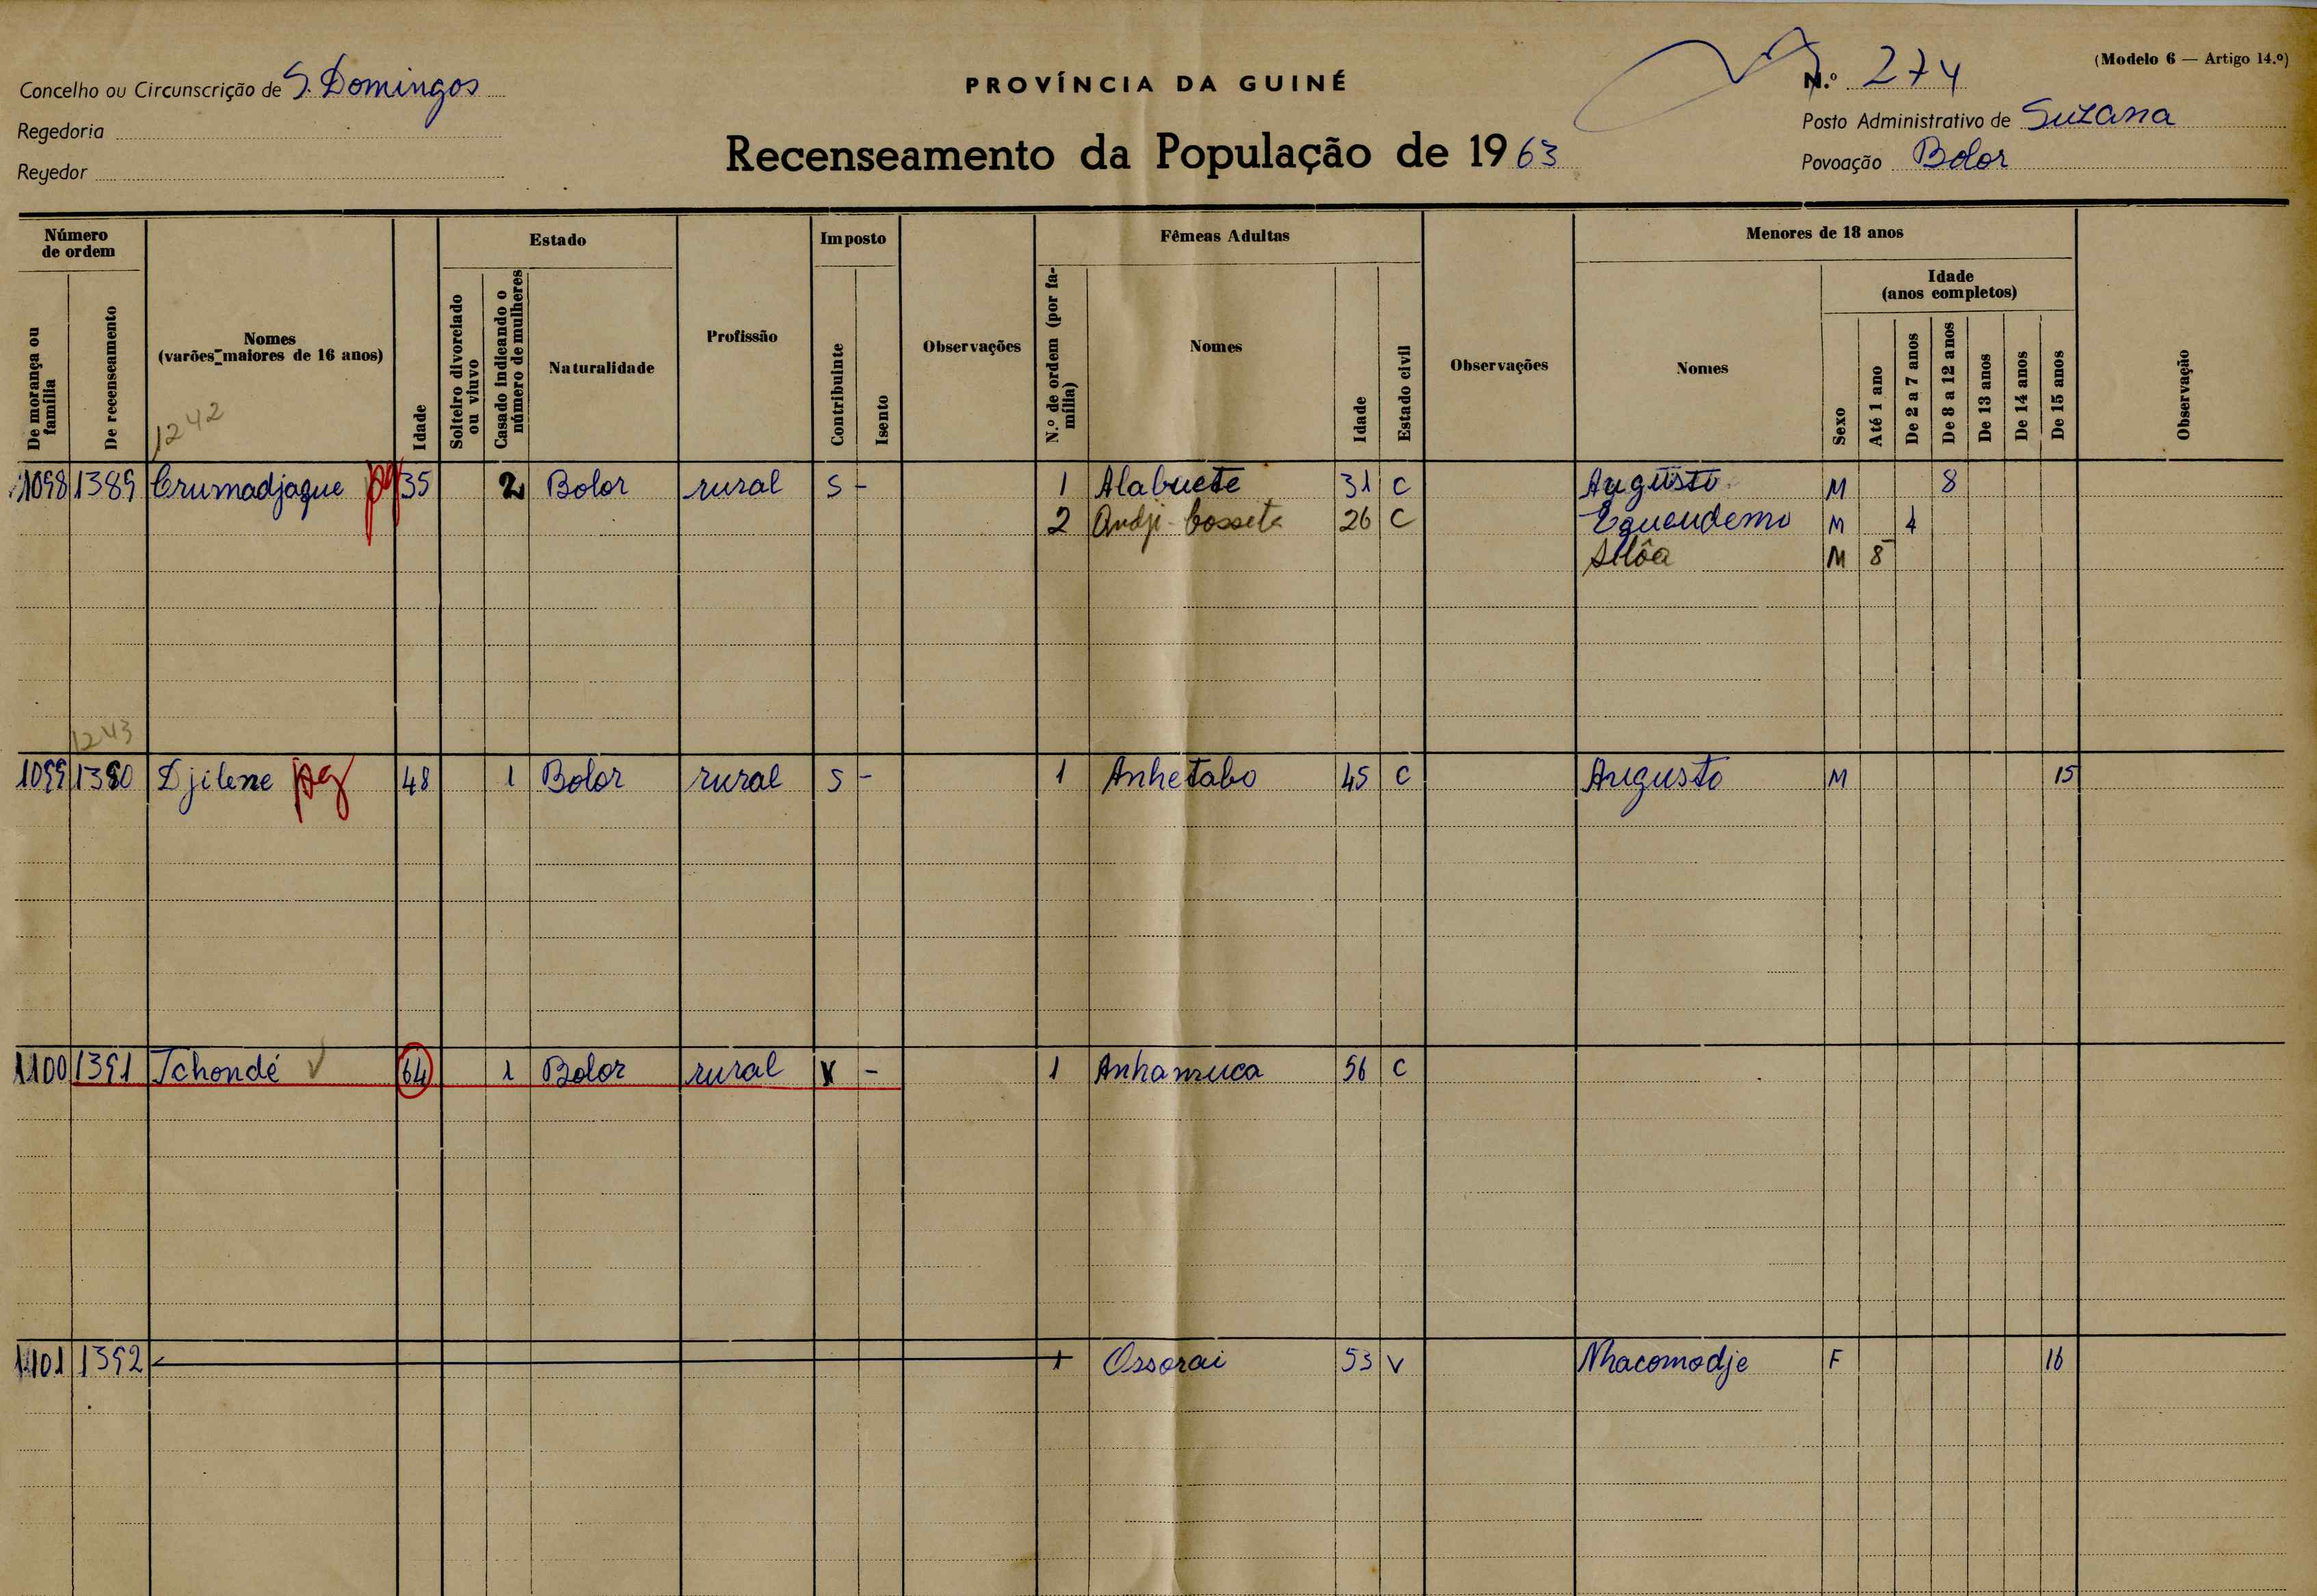 (Modelo 6 — Artigo 14.º)
Concelho ou Circunscrição de S. Domingos
PROVÍNCIA DA GUINÉ
N.º 274
Regedoria
Posto Administrativo de Suzana
Recenseamento da População de 1963
Reyedor
Povoação Bolor
Número de ordem
De morança ou família
De recenseamento
Nomes
(varões maiores de 16 anos)
Idade
Estado
Solteiro divorciado ou viuvo
Casado indicando o número de mulheres
Naturalidade
Profissão
Imposto
Contribuinte
Isento
Observações
Fêmeas Adultas
N.º de ordem (por família)
Nomes
Idade
Estado civil
Observações
Menores de 18 anos
Nomes
Sexo
Idade
(anos completos)
Até 1 ano
De 2 a 7 anos
De 8 a 12 anos
De 13 anos
De 14 anos
De 15 anos
Observação
1242
1098 1389 Crumadjaque pg 35 2 Bolor rural S - 1 Alabuete 31 C Augusto M 8
2 Andji-Cosseta 26 C Equendemo M 4
M 8
1243
1099 1390 Djilene pg 48 1 Bolor rural S - 1 Anhetabo 45 C Augusto M 15
1100 1391 Tchondé V 64 1 Bolor rural V - 1 Anhamuca 56 C
1101 1392 1 Ossorai 53 V Nhacomodje F 16